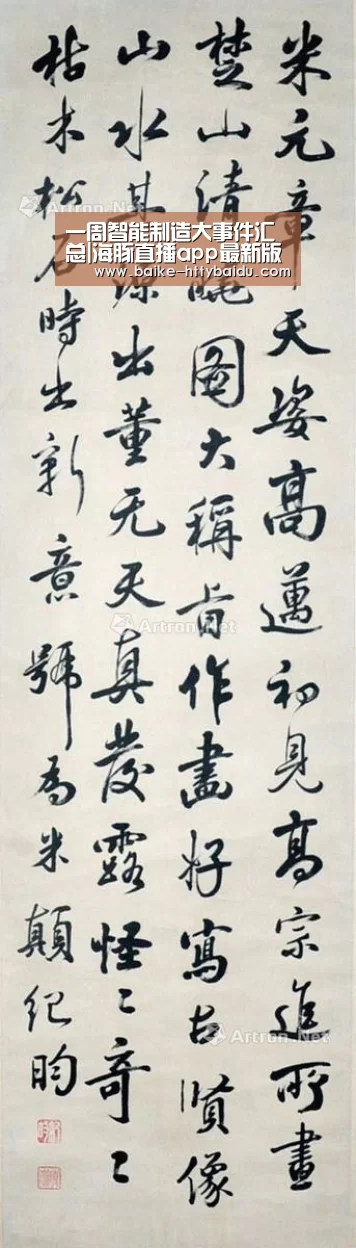 米元章天姿高邁初見高宗進所畫
楚山清曉圖大稱旨作畫好寫古賢像
山水其源出董元天真發露怪〻奇〻
枯木松石時出新意號為米顛紀昀
一周智能制造大事件汇
总|海豚直播app最新版
www.baike-httybaidu.com
Artron.Net
Artron.Net
Artron.Net